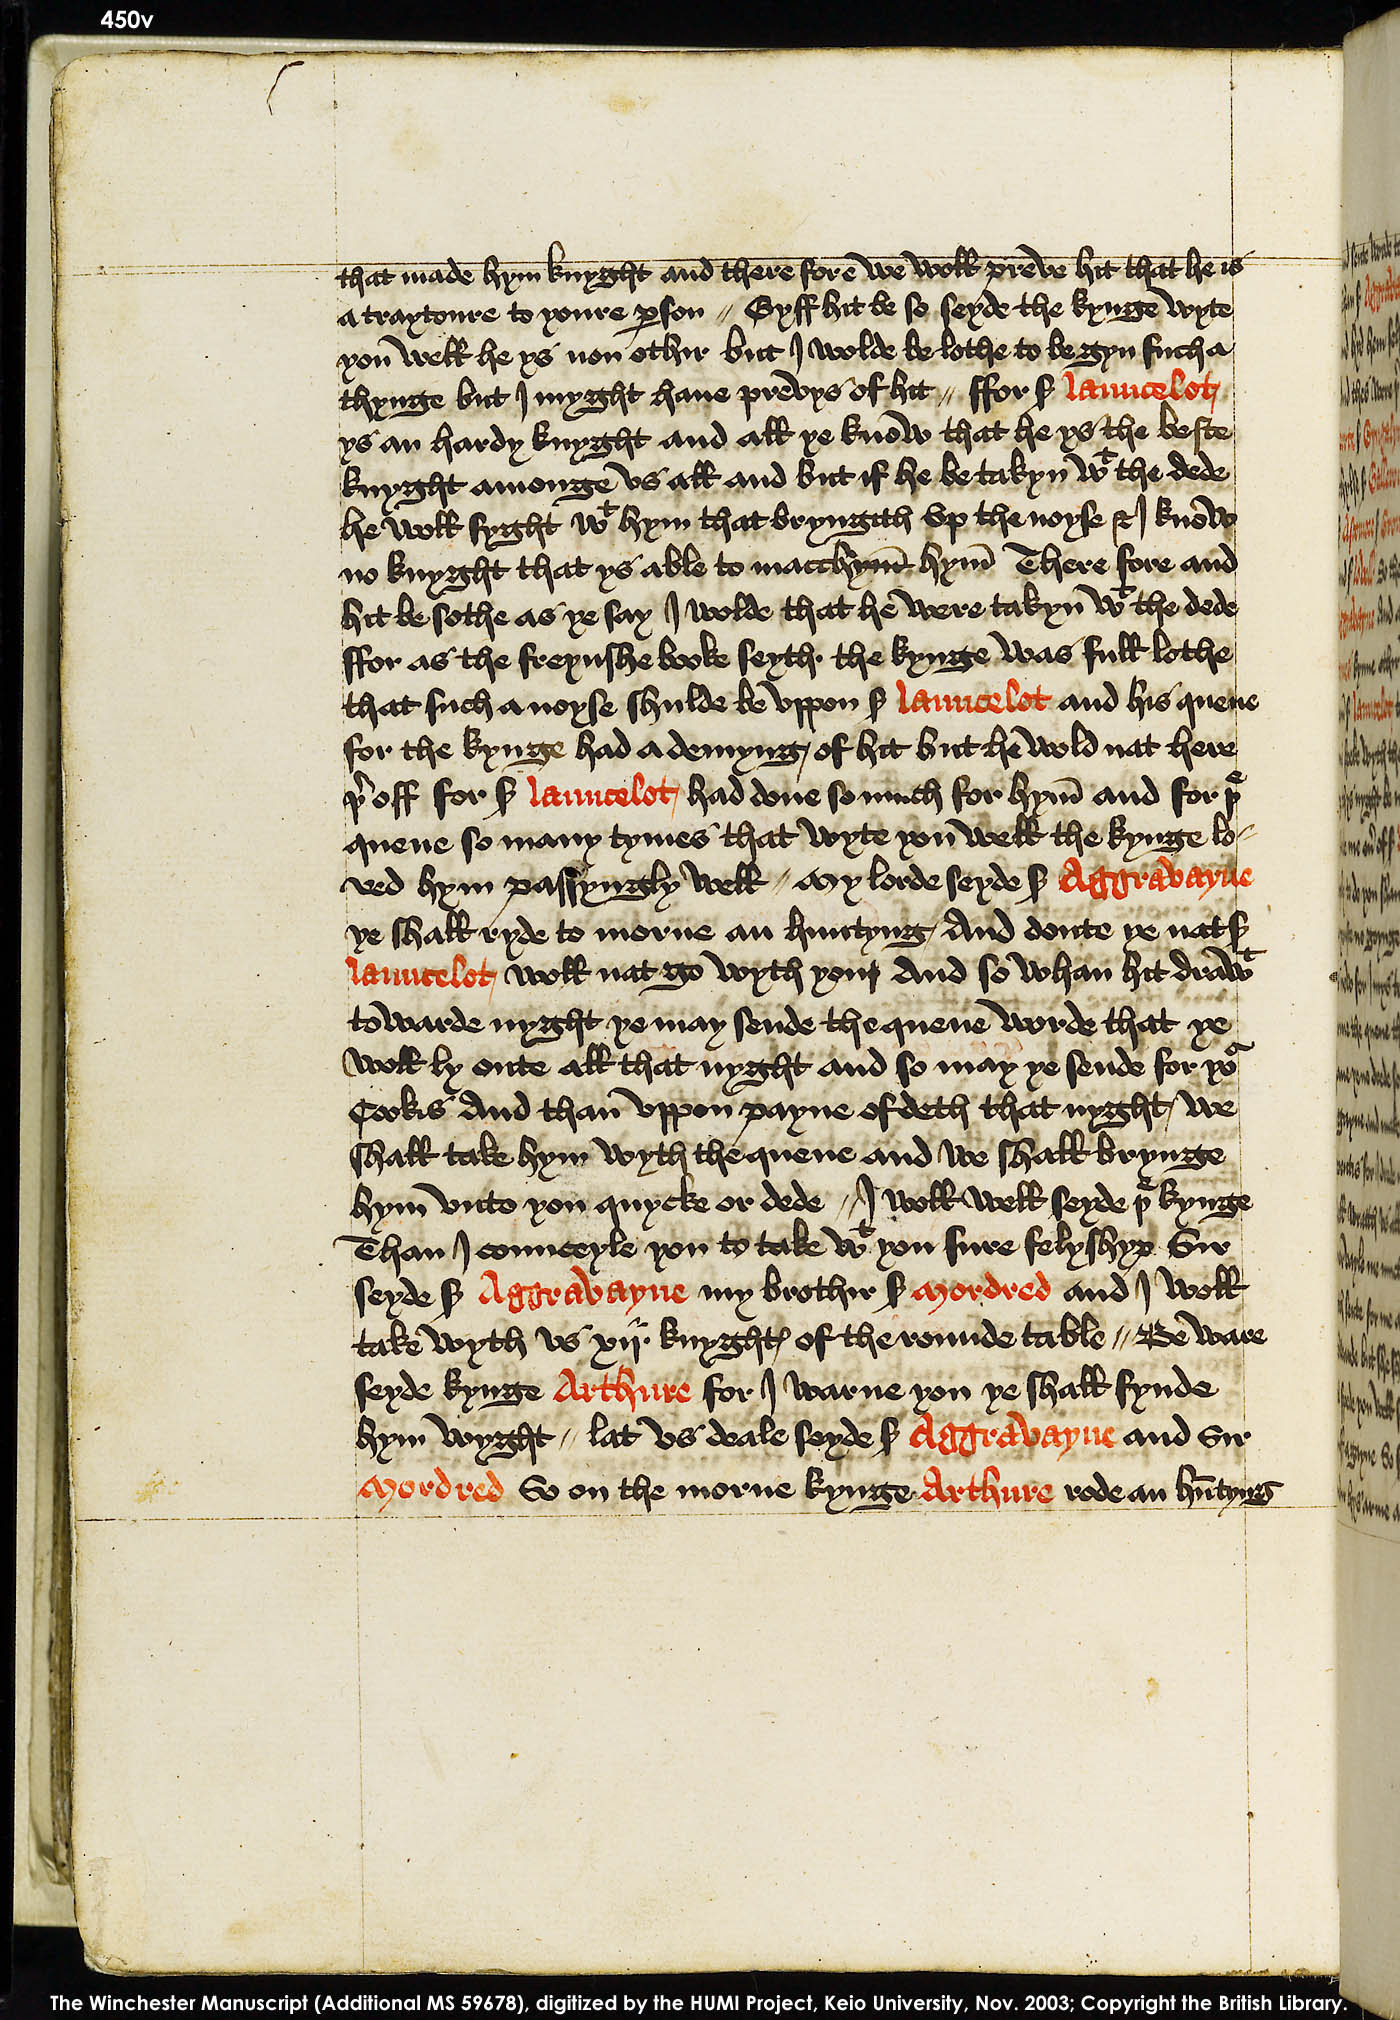 450v
that made hym knyght and there fore we woll preve hit that he is
a traytoure to youre ꝑson // Gyff hit be so seyde the kynge wyte
you well he ys non othir but I wolde be lothe to be gyn such a
thynge but I myght have prevys of hit // ffor sꝭ launcelot
ys an hardy knyght and all ye know that he ys the beste
knyght amonge us all and but if he be takyn wᵗ the dede
he woll fyght wᵗ hym that bryngith up the noyse & I know
no knyght that ys able to macch hym There fore and
hit be sothe as ye say I wolde that he were takyn wᵗ the dede
ffor as the freynshe booke seyth the kynge was full lothe
that such a noyse shulde be uppon sꝭ launcelot and his quene
for the kynge had a demyng of hit but he wold nat here
þʳoff for sꝭ launcelot had done so much for hym̄ and for þᵉ
quene so many tymes that wyte you well the kynge lo-
ved hym passyngly well // My lorde seyde sꝭ Aggravayne
ye shall ryde to morne an huntyng And doute ye nat sꝭ
launcelot woll nat go wyth you And so whan hit drawᵗ
towarde nyght ye may sende the quene worde that ye
woll ly oute all that nyght and so may ye sende for yoʳ
Cookis And than uppon payne of deth that nyght we
shall take hym wyth the quene and we shall brynge
hym unto you quycke or dede // I woll well seyde þᵉ kynge
Than I counceyle you to take wᵗ you sure felyshyp Sir
seyde sꝭ Aggravayne my brothir sꝭ Mordred and I woll
take wyth us xij knyghtꝭ of the rounde table // Be ware
seyde kynge Arthure for I warne you ye shall fynde
hym wyght // lat us deale seyde sꝭ Aggravayne and Sir
Mordred So on the morne kynge Arthure rode an hūtyng
The Winchester Manuscript (Additional MS 59678), digitized by the HUMI Project, Keio University, Nov. 2003; Copyright the British Library.